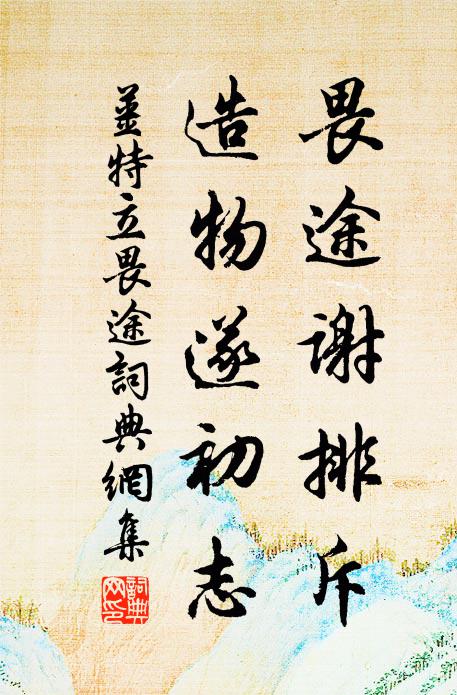 畏途谢排斥
造物遂初志
姜特立畏途词典網集
詞典
网印